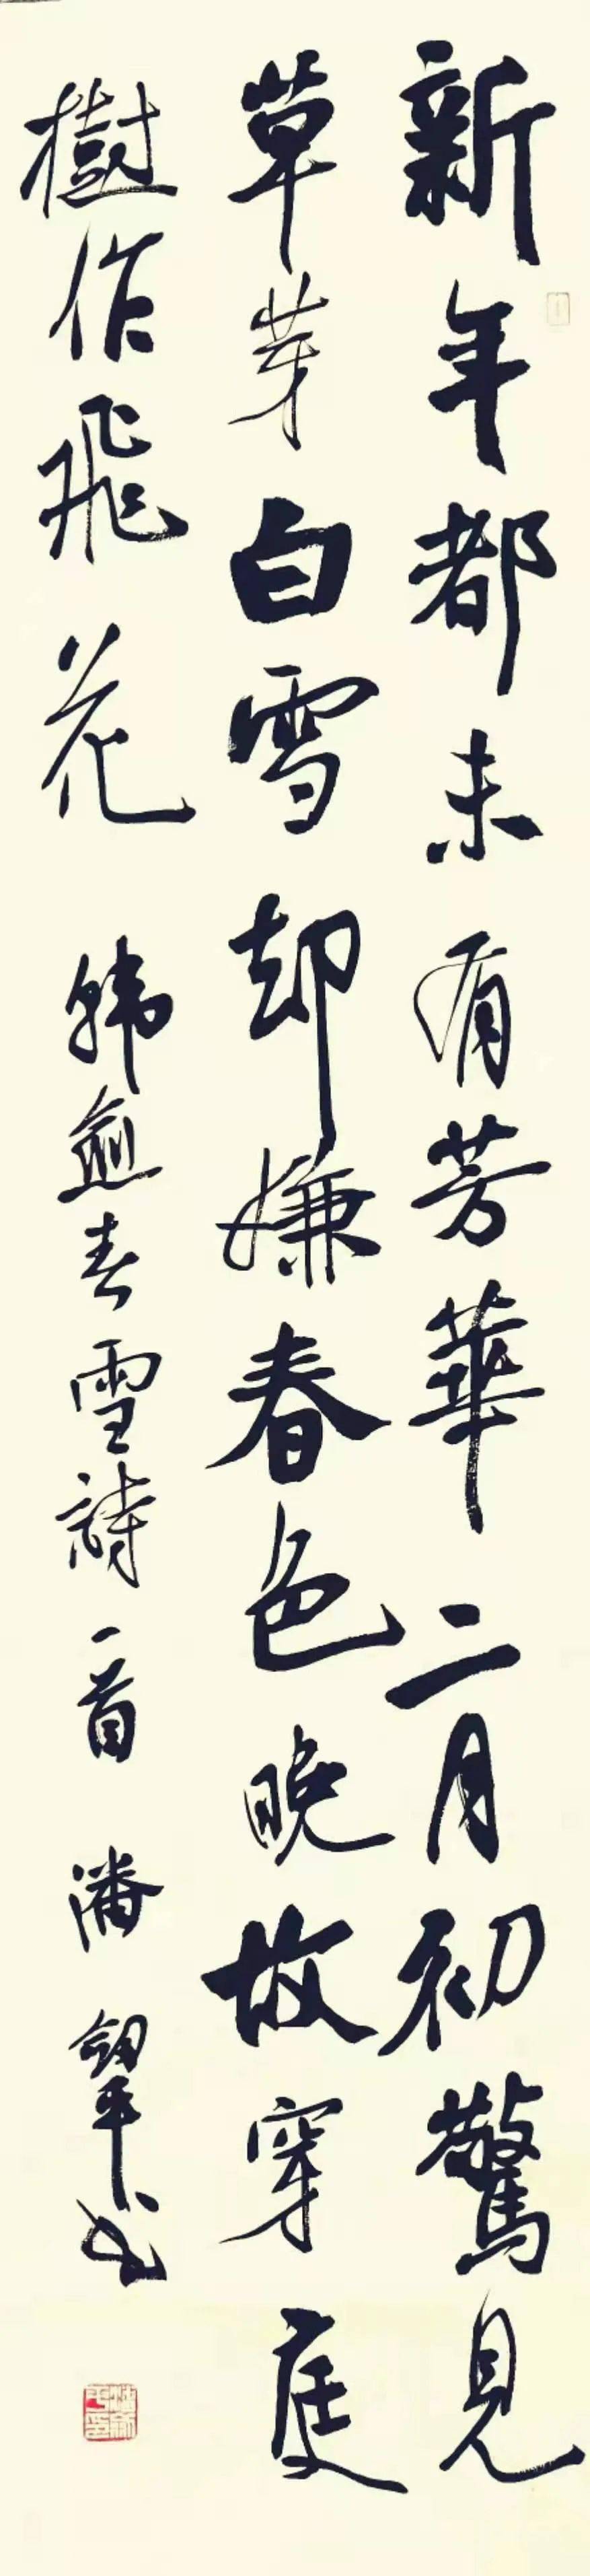 新年都未有芳華二月初驚見
草芽白雪却嫌春色晚故穿庭
樹作飛花 韓愈春雪詩一首 潘 書